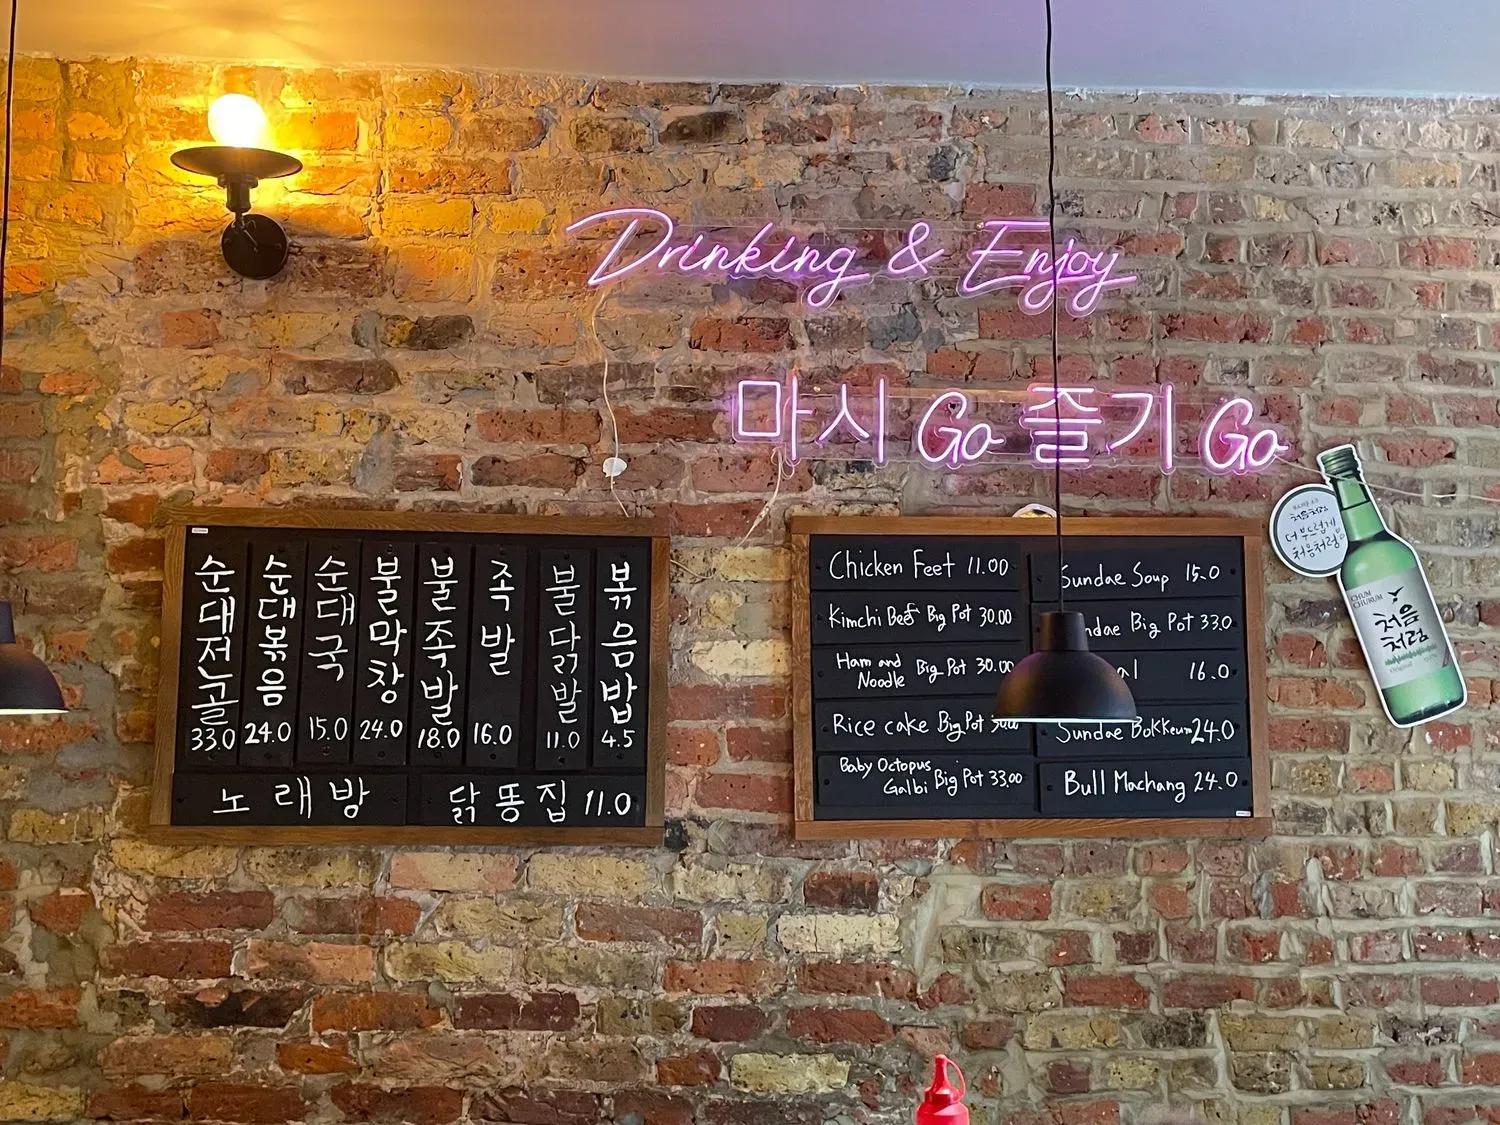 Drinking & Enjoy
마시 Go 즐기 Go
순대전골 33.0
순대볶음 24.0
순대국 15.0
불막창 24.0
불족발 18.0
족발 16.0
불닭발 11.0
볶음밥 4.5
노래방
닭똥집 11.0
Chicken Feet 11.00
Kimchi Beef Big Pot 30.00
Ham and Noodle Big Pot 30.00
Rice cake Big Pot
Baby Octopus Galbi Big Pot 33.00
Sundae Soup 15.0
Big Pot 33.0
16.0
Sundae Bokkeum 24.0
Bull Machang 24.0
처음처럼
더 부드럽게
처음처럼
CHUM
CHURUM
처음
처럼
Original